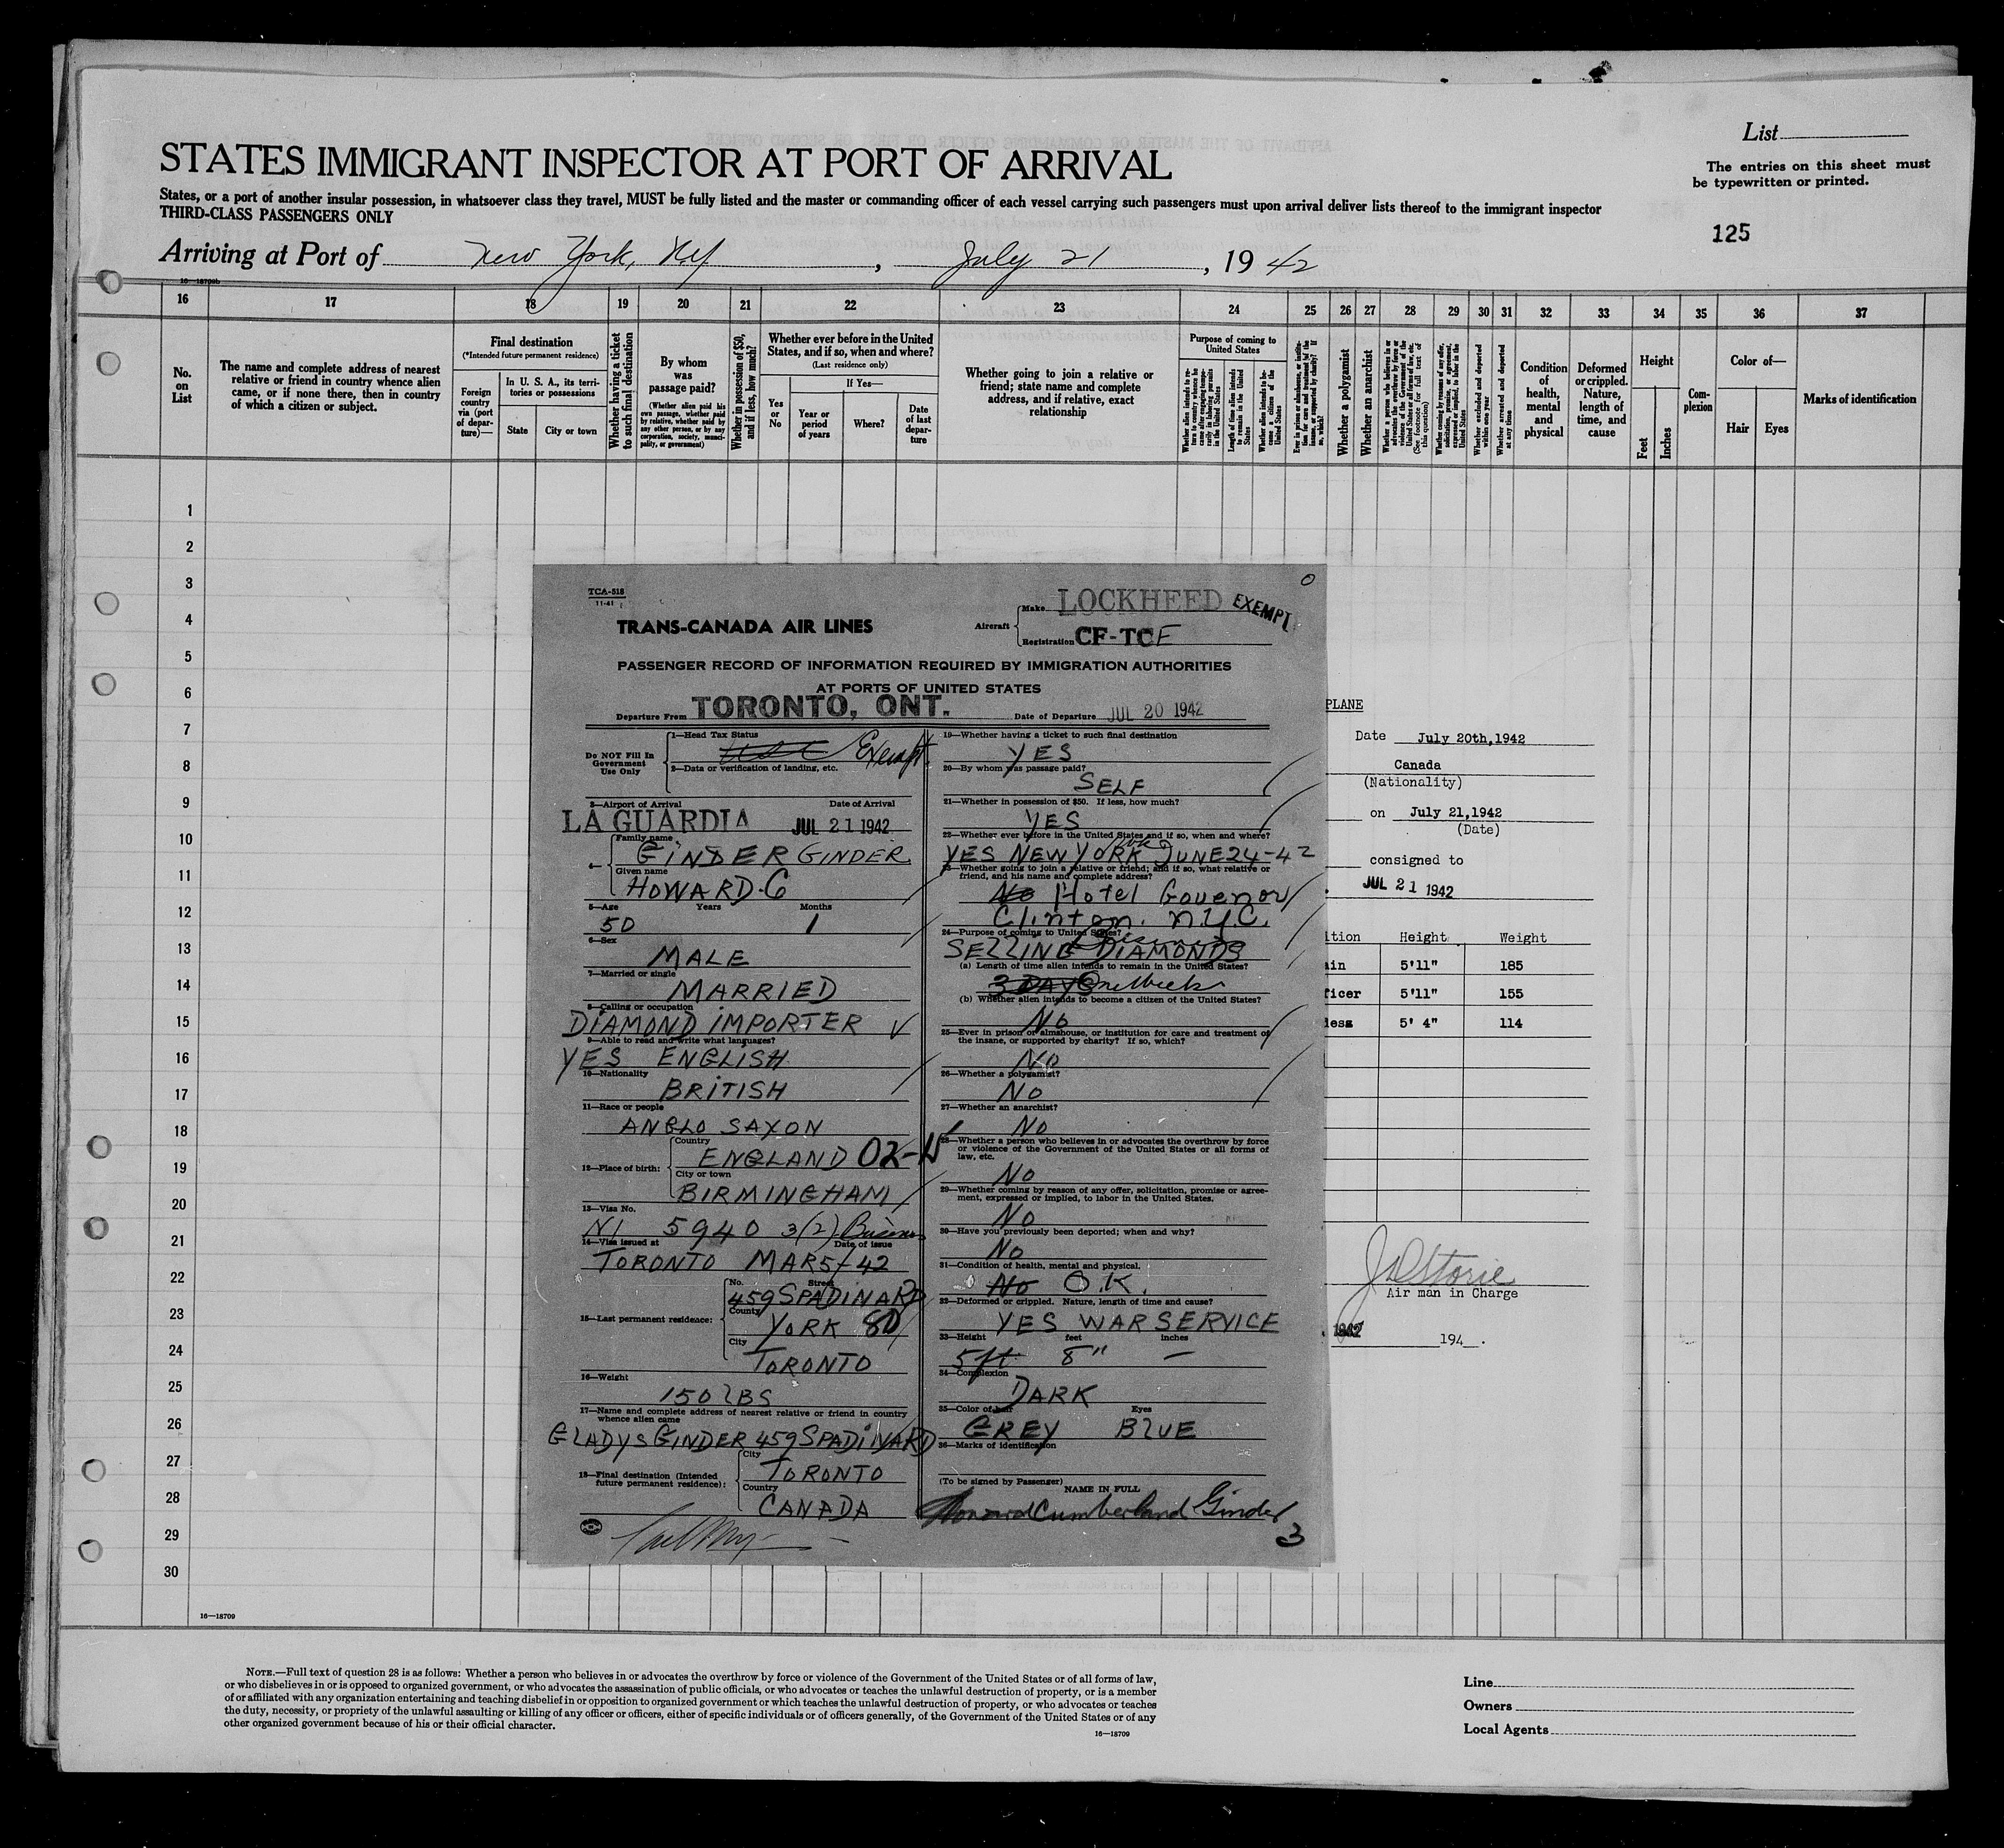 List
STATES IMMIGRANT INSPECTOR AT PORT OF ARRIVAL
The entries on this sheet must
be typewritten or printed.
States, or a port of another insular possession, in whatsoever class they travel, MUST be fully listed and the master or commanding officer of each vessel carrying such passengers must upon arrival deliver lists thereof to the immigrant inspector
THIRD-CLASS PASSENGERS ONLY
125
Arriving at Port of New York, NY, July 21, 1942
16 17 18 19 20 21 22 23 24 25 26 27 28 29 30 31 32 33 34 35 36 37
No. on List
The name and complete address of nearest relative or friend in country whence alien came, or if none there, then in country of which a citizen or subject.
Final destination
(*Intended future permanent residence)
Foreign country via (port of departure)—
In U. S. A., its territories or possessions
State
City or town
Whether having a ticket to such final destination
By whom was passage paid?
(Whether alien paid his own passage, whether paid by relative, whether paid by any other person, or by any corporation, society, municipality, or government)
Whether in possession of $50, and if less, how much?
Whether ever before in the United States, and if so, when and where?
(Last residence only)
Yes or No
If Yes—
Year or period of years
Where?
Date of last departure
Whether going to join a relative or friend; state name and complete address, and if relative, exact relationship
Purpose of coming to United States
Length of time alien intends to remain in the United States
Whether alien intends to become a citizen of the United States
Whether a polygamist
Whether an anarchist
Whether excluded and deported within one year
Whether arrested and deported at any time
Condition of health, mental and physical
Deformed or crippled. Nature, length of time, and cause
Height
Feet
Inches
Complexion
Color of—
Hair
Eyes
Marks of identification
1
2
3
4
5
6
7
8
9
10
11
12
13
14
15
16
17
18
19
20
21
22
23
24
25
26
27
28
29
30
16—18709
TCA-518
11-41
TRANS-CANADA AIR LINES
Aircraft
Make LOCKHEED
EXEMPT
Registration CF-TCF
PASSENGER RECORD OF INFORMATION REQUIRED BY IMMIGRATION AUTHORITIES
AT PORTS OF UNITED STATES
Departure From TORONTO, ONT.
Date of Departure JUL 20 1942
Do NOT Fill In
Government
Use Only
1—Head Tax Status
Exempt
2—Data or verification of landing, etc.
3—Airport of Arrival
Date of Arrival
LA GUARDIA JUL 21 1942
4—
Family name
GINDER GINDER
Given name
HOWARD·C
5—Age Years Months
50 1
6—Sex
MALE
7—Married or single
MARRIED
8—Calling or occupation
DIAMOND IMPORTER
9—Able to read and write what languages?
YES ENGLISH
10—Nationality
BRITISH
11—Race or people
ANGLO SAXON
12—Place of birth:
Country
ENGLAND
City or town
BIRMINGHAM
13—Visa No.
NI 5940 3(2)
14—Visa issued at
Date of issue
TORONTO MAR 5-42
15—Last permanent residence:
No. Street
459 SPADINA RD
County
YORK 80
City
TORONTO
16—Weight
150 LBS
17—Name and complete address of nearest relative or friend in country
whence alien came
GLADYS GINDER 459 SPADINA RD
18—Final destination (Intended
future permanent residence):
City
TORONTO
Country
CANADA
19—Whether having a ticket to such final destination
YES
20—By whom was passage paid?
SELF
21—Whether in possession of $50. If less, how much?
YES
22—Whether ever before in the United States and if so, when and where?
YES NEW YORK JUNE 24-42
23—Whether going to join a relative or friend; and if so, what relative or
friend, and his name and complete address?
No Hotel Govenor
Clinton. N.Y.C.
24—Purpose of coming to United States?
SELLING DIAMONDS
(a) Length of time alien intends to remain in the United States?
3 DAYS One Week
(b) Whether alien intends to become a citizen of the United States?
No
25—Ever in prison or almshouse, or institution for care and treatment of
the insane, or supported by charity? If so, which?
No
26—Whether a polygamist?
No
27—Whether an anarchist?
No
28—Whether a person who believes in or advocates the overthrow by force
or violence of the Government of the United States or all forms of
law, etc.
No
29—Whether coming by reason of any offer, solicitation, promise or agree-
ment, expressed or implied, to labor in the United States.
No
30—Have you previously been deported; when and why?
No
31—Condition of health, mental and physical.
No O.K.
32—Deformed or crippled. Nature, length of time and cause?
YES WAR SERVICE
33—Height feet inches
5ft 8" —
34—Complexion
DARK
35—Color of hair Eyes
GREY BLUE
36—Marks of identification
(To be signed by Passenger)
NAME IN FULL
Howard Cumberland Ginder
3
PLANE
Date July 20th,1942
Canada
(Nationality)
on July 21,1942
(Date)
consigned to
JUL 21 1942
Height Weight
5'11" 185
5'11" 155
5' 4" 114
J D Storie
Air man in Charge
1942 194 .
NOTE.—Full text of question 28 is as follows: Whether a person who believes in or advocates the overthrow by force or violence of the Government of the United States or of all forms of law,
or who disbelieves in or is opposed to organized government, or who advocates the assassination of public officials, or who advocates or teaches the unlawful destruction of property, or is a member
of or affiliated with any organization entertaining and teaching disbelief in or opposition to organized government or which teaches the unlawful destruction of property, or who advocates or teaches
the duty, necessity, or propriety of the unlawful assaulting or killing of any officer or officers, either of specific individuals or of officers generally, of the Government of the United States or of any
other organized government because of his or their official character.
16—18709
Line
Owners
Local Agents